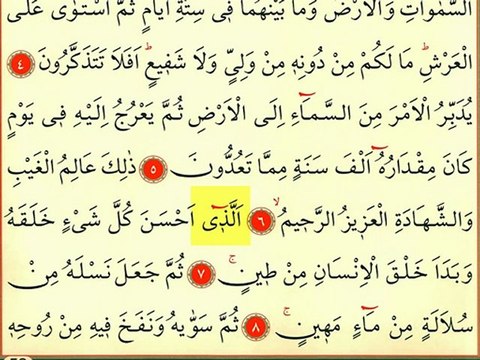 السَّمٰوَاتِ وَالْاَرْضَ وَمَا بَيْنَهُمَا ف۪ي سِتَّةِ اَيَّامٍ ثُمَّ اسْتَوٰى عَلَى
الْعَرْشِۜ مَا لَكُمْ مِنْ دُونِه۪ مِنْ وَلِيٍّ وَلَا شَف۪يعٍۜ اَفَلَا تَتَذَكَّرُونَ ٤
يُدَبِّرُ الْاَمْرَ مِنَ السَّمَٓاءِ اِلَى الْاَرْضِ ثُمَّ يَعْرُجُ اِلَيْهِ ف۪ي يَوْمٍ
كَانَ مِقْدَارُهُٓ اَلْفَ سَنَةٍ مِمَّا تَعُدُّونَ ٥ ذٰلِكَ عَالِمُ الْغَيْبِ
وَالشَّهَادَةِ الْعَز۪يزُ الرَّح۪يمُۙ ٦ اَلَّذ۪ٓي اَحْسَنَ كُلَّ شَيْءٍ خَلَقَهُ
وَبَدَاَ خَلْقَ الْاِنْسَانِ مِنْ ط۪ينٍۚ ٧ ثُمَّ جَعَلَ نَسْلَهُ مِنْ
سُلَالَةٍ مِنْ مَٓاءٍ مَه۪ينٍۚ ٨ ثُمَّ سَوّٰيهُ وَنَفَخَ ف۪يهِ مِنْ رُوحِه۪